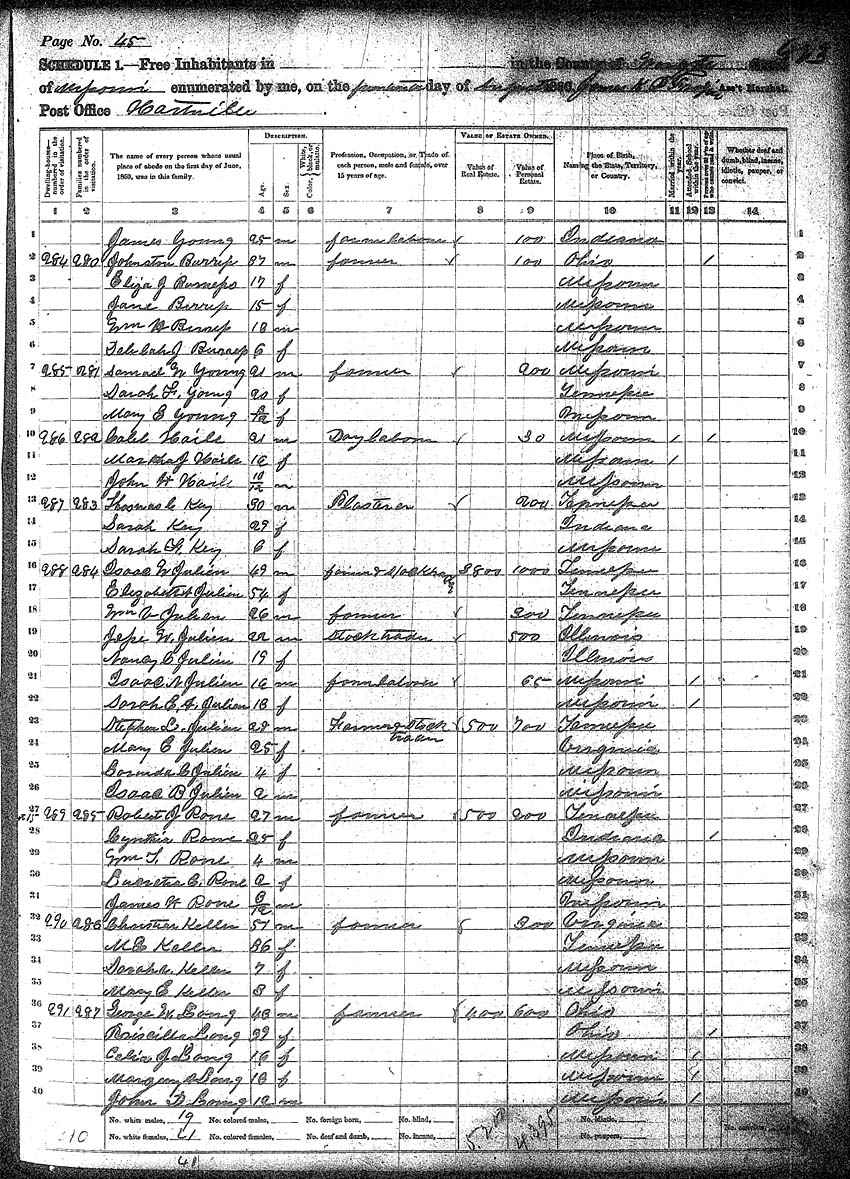 Page No. 45
SCHEDULE 1.—Free Inhabitants in in the County of
of Missouri enumerated by me, on the day of August 1860. James K. Ass't Marshal.
Post Office Hartville
DESCRIPTION. VALUE OF ESTATE OWNED.
Dwelling-houses—numbered in the order of visitation. Families numbered in the order of visitation. The name of every person whose usual place of abode on the first day of June, 1860, was in this family. Age. Sex. Color, White, black, or mulatto. Profession, Occupation, or Trade of each person, male and female, over 15 years of age. Value of Real Estate. Value of Personal Estate. Place of Birth, Naming the State, Territory, or Country. Married within the year. Attended School within the year. Whether deaf and dumb, blind, insane, idiotic, pauper, or convict.
1 2 3 4 5 6 7 8 9 10 11 12 13 14
1 James Young 25 m farm laborer 100 Indiana 1
2 284 280 Johnston 37 m farmer 100 Ohio / 2
3 Eliza J 17 f Missouri 3
4 Jane 15 f Missouri 4
5 Wm 13 m Missouri 5
6 6 f Missouri 6
7 285 281 Samuel W Young 21 m farmer 200 Missouri 7
8 Sarah F. Young 20 f Tennessee 8
9 Mary E Young f Missouri 9
10 286 282 Caleb Haile 21 m Day laborer 30 Missouri / / 10
11 Martha J Haile 16 f Missouri / 11
12 John H Haile 10/12 m Missouri 12
13 287 283 Thomas C Key 30 m Plasterer 200 Tennessee 13
14 Sarah Key 29 f Indiana 14
15 Sarah Key 6 f Missouri 15
16 288 284 Isaac W Julien 49 m farmer & Stock 3800 1000 Tennessee 16
17 Elizabeth Julien 54 f Tennessee 17
18 Wm V Julien 26 m farmer 300 Tennessee 18
19 Jesse W. Julien 22 m Stock trader 500 Illinois 19
20 Nancy C Julien 19 f Illinois 20
21 Isaac N Julien 16 m farm laborer 65 Missouri / 21
22 Sarah E. A. Julien 13 f Missouri / 22
23 Stephen L. Julien 28 m Farmer & Stock trader 500 700 Tennessee 23
24 Mary C Julien 25 f Virginia 24
25 C Julien 4 f Missouri 25
26 Isaac B Julien 2 m Missouri 26
27 289 285 Robert J Rone 27 m farmer 500 200 Tennessee 27
28 Cynthia Rone 25 f Indiana / 28
29 Wm T. Rone 4 m Missouri 29
30 Lucretia C. Rone 2 f Missouri 30
31 James W Rone m Missouri 31
32 290 286 Christian Keller 57 m farmer 300 Virginia 32
33 M E Keller 36 f Tennessee 33
34 Sarah A. Keller 7 f Missouri 34
35 Mary E Keller 3 f Missouri 35
36 291 287 George W. Long 43 m farmer 400 600 Ohio 36
37 Priscilla Long 39 f Ohio / 37
38 Celia J Long 16 f Missouri / 38
39 Long 13 f Missouri / 39
40 John D Long 12 m Missouri / 40
No. white males, 19 No. colored males, No. foreign born, No. blind, No. idiotic,
No. white females, 21 No. colored females, No. deaf and dumb, No. insane, 4395 No. paupers, No. convicts,